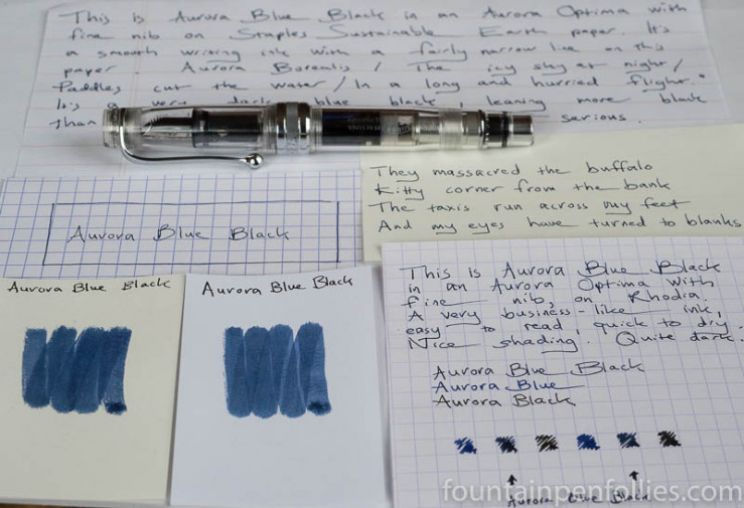 This is Aurora Blue Black in an Aurora Optima with
fine nib on Staples Sustainable Earth paper. It's
a smooth writing ink with a fairly narrow line on this
paper Aurora Borealis / The icy sky at night /
Paddles cut the water / In a long and hurried flight."
It's a very dark blue black, leaning more black
than serious.
They massacred the buffalo
Kitty corner from the bank
The taxis run across my feet
And my eyes have turned to blanks
Aurora Blue Black
Aurora Blue Black
Aurora Blue Black
This is Aurora Blue Black
in an Aurora Optima with
fine nib, on Rhodia.
A very business-like ink,
easy to read, quick to dry.
Nice shading. Quite dark.
Aurora Blue Black
Aurora Blue
Aurora Black
Aurora Blue Black
fountainpenfollies.com